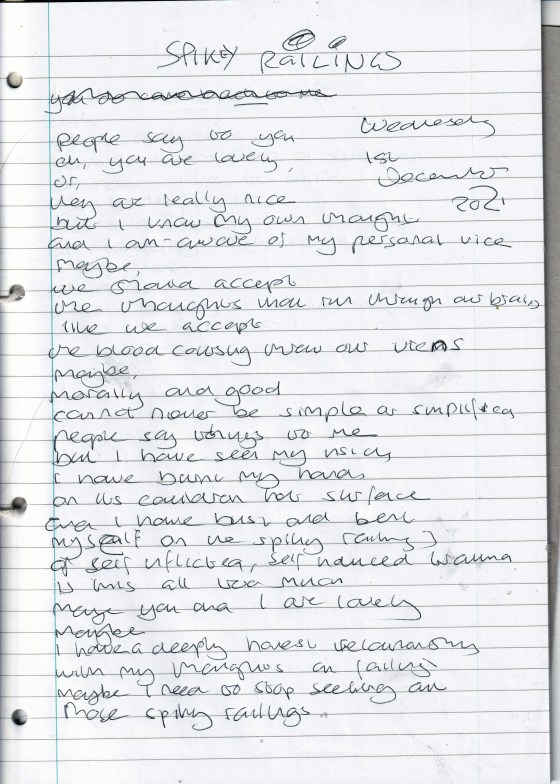 SPIKEY RAILINGS
people say to you
oh, you are lovely,
or,
they are really nice
but I know my own thoughts
and I am aware of my personal vice
Wednesday
1st
December
2021
maybe,
we should accept
the thoughts that run through our brains
like we accept
the blood coursing threw our viens
maybe,
morally and good
cannot never be simple or simplified
people say things to me
but I have seen my
I have burnt my hands
on its cauldron hot surface
and I have bust and bent
myself on the spikey railings
of self inflicted, self induced trauma
is this all too much
maybe you and I are lovely
maybe
I have a deeply honest relationship
with my thoughts on failing
maybe I need to stop seeking out
those spikey railings.